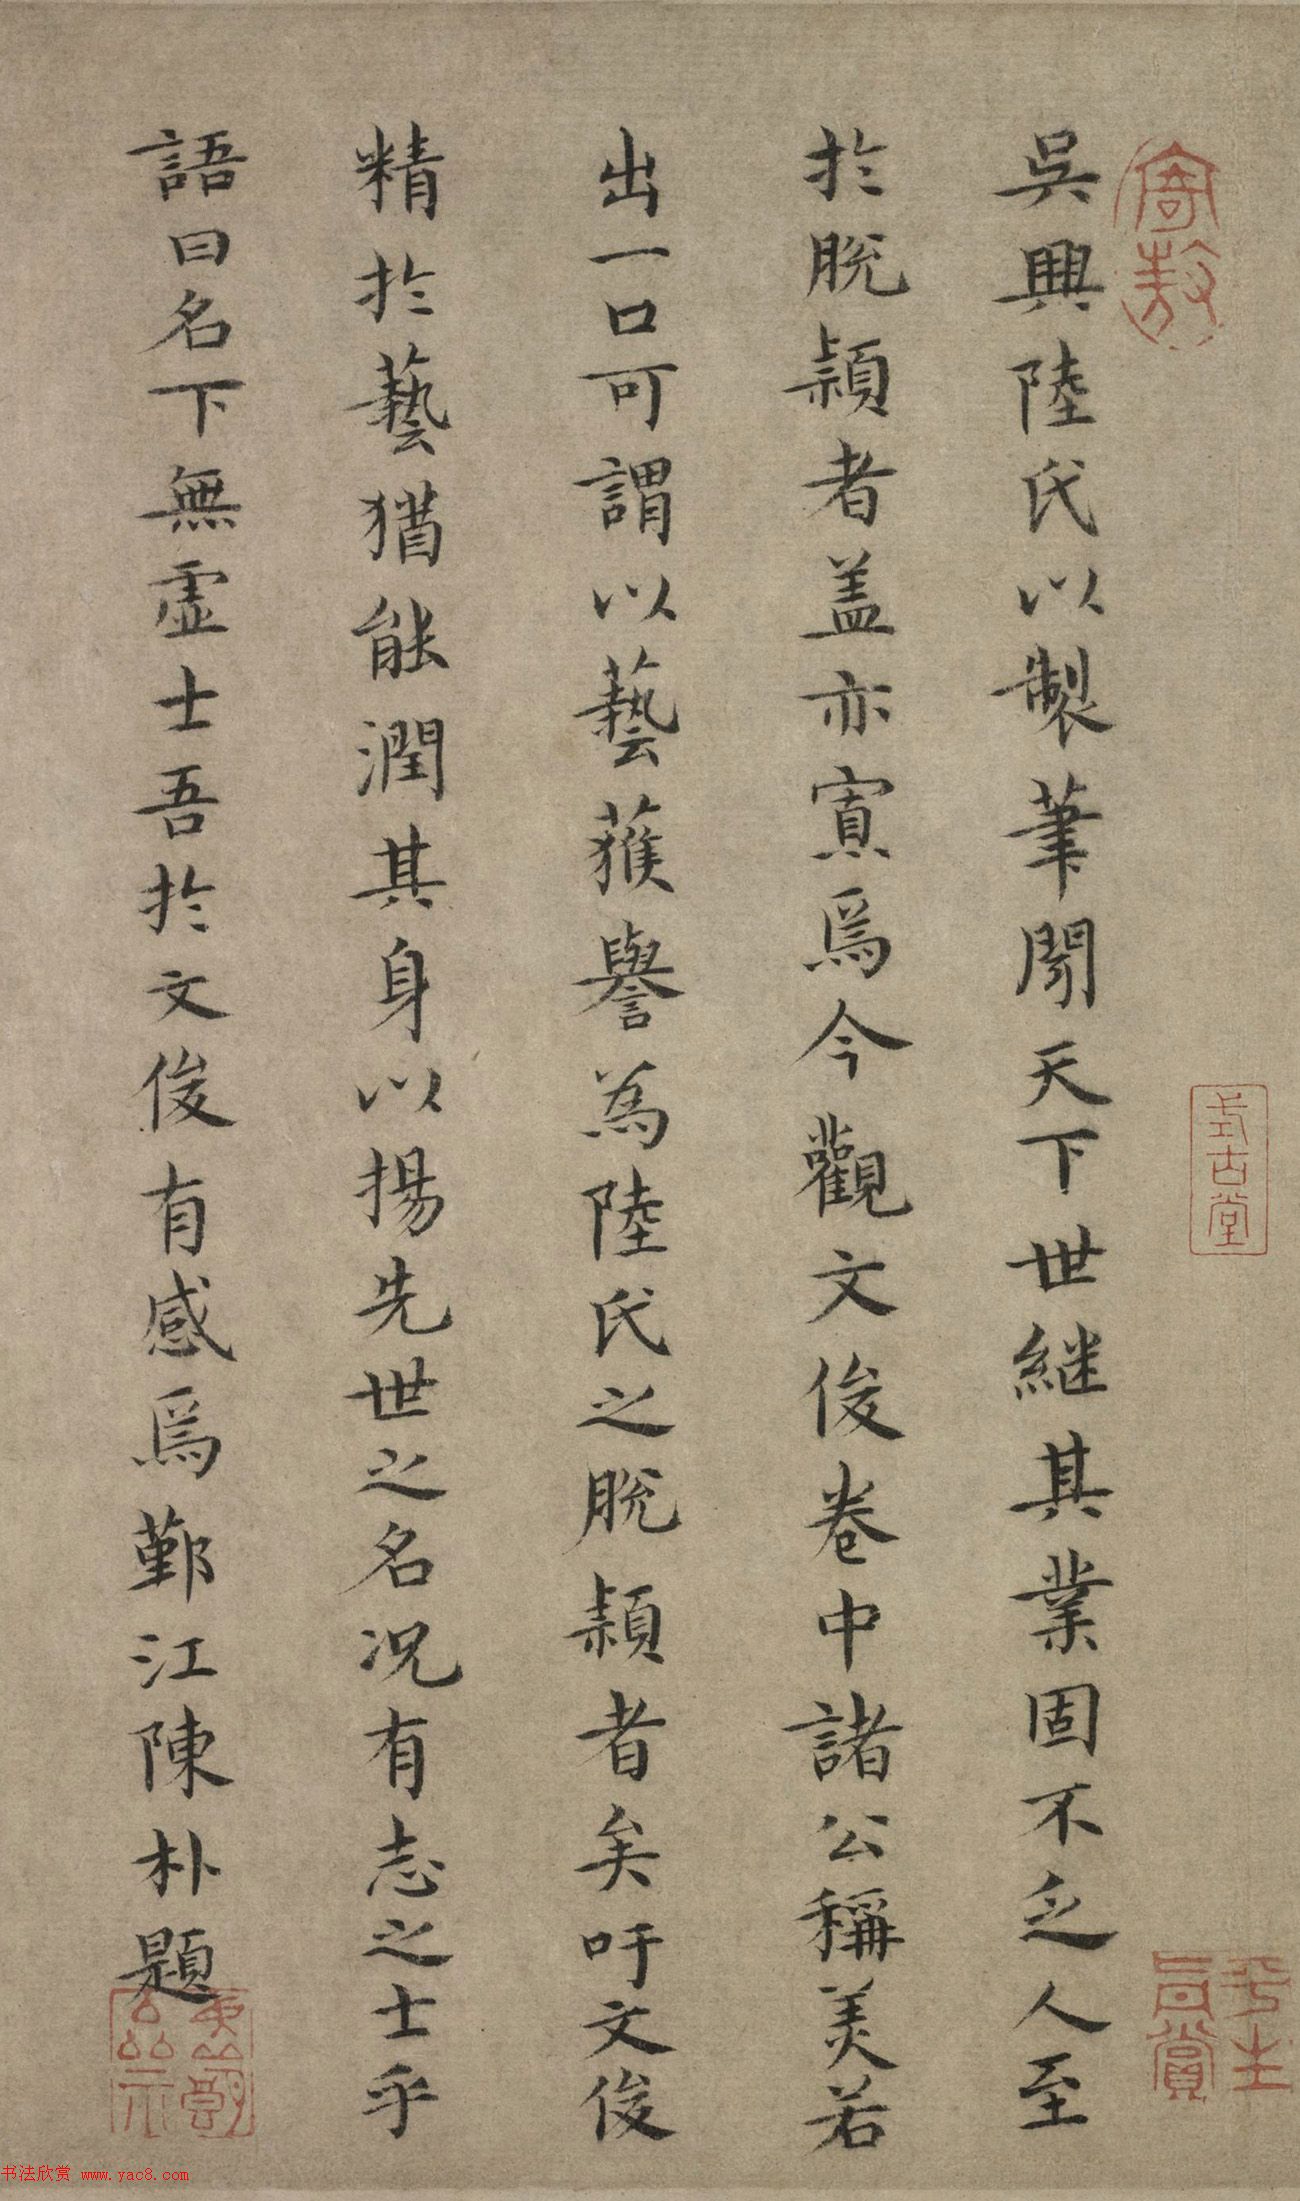 吳興陸氏以製筆聞天下世継其業固不乏人至
於脫穎者盖亦寡焉今觀文俊卷中諸公稱美若
出一口可謂以藝獲譽為陸氏之脫穎者矣吁文俊
精於藝猶能潤其身以揚先世之名况有志之士乎
語曰名下無虛士吾於文俊有感焉鄞江陳朴題
式古堂
平生
真賞
书法欣赏 www.yac8.com